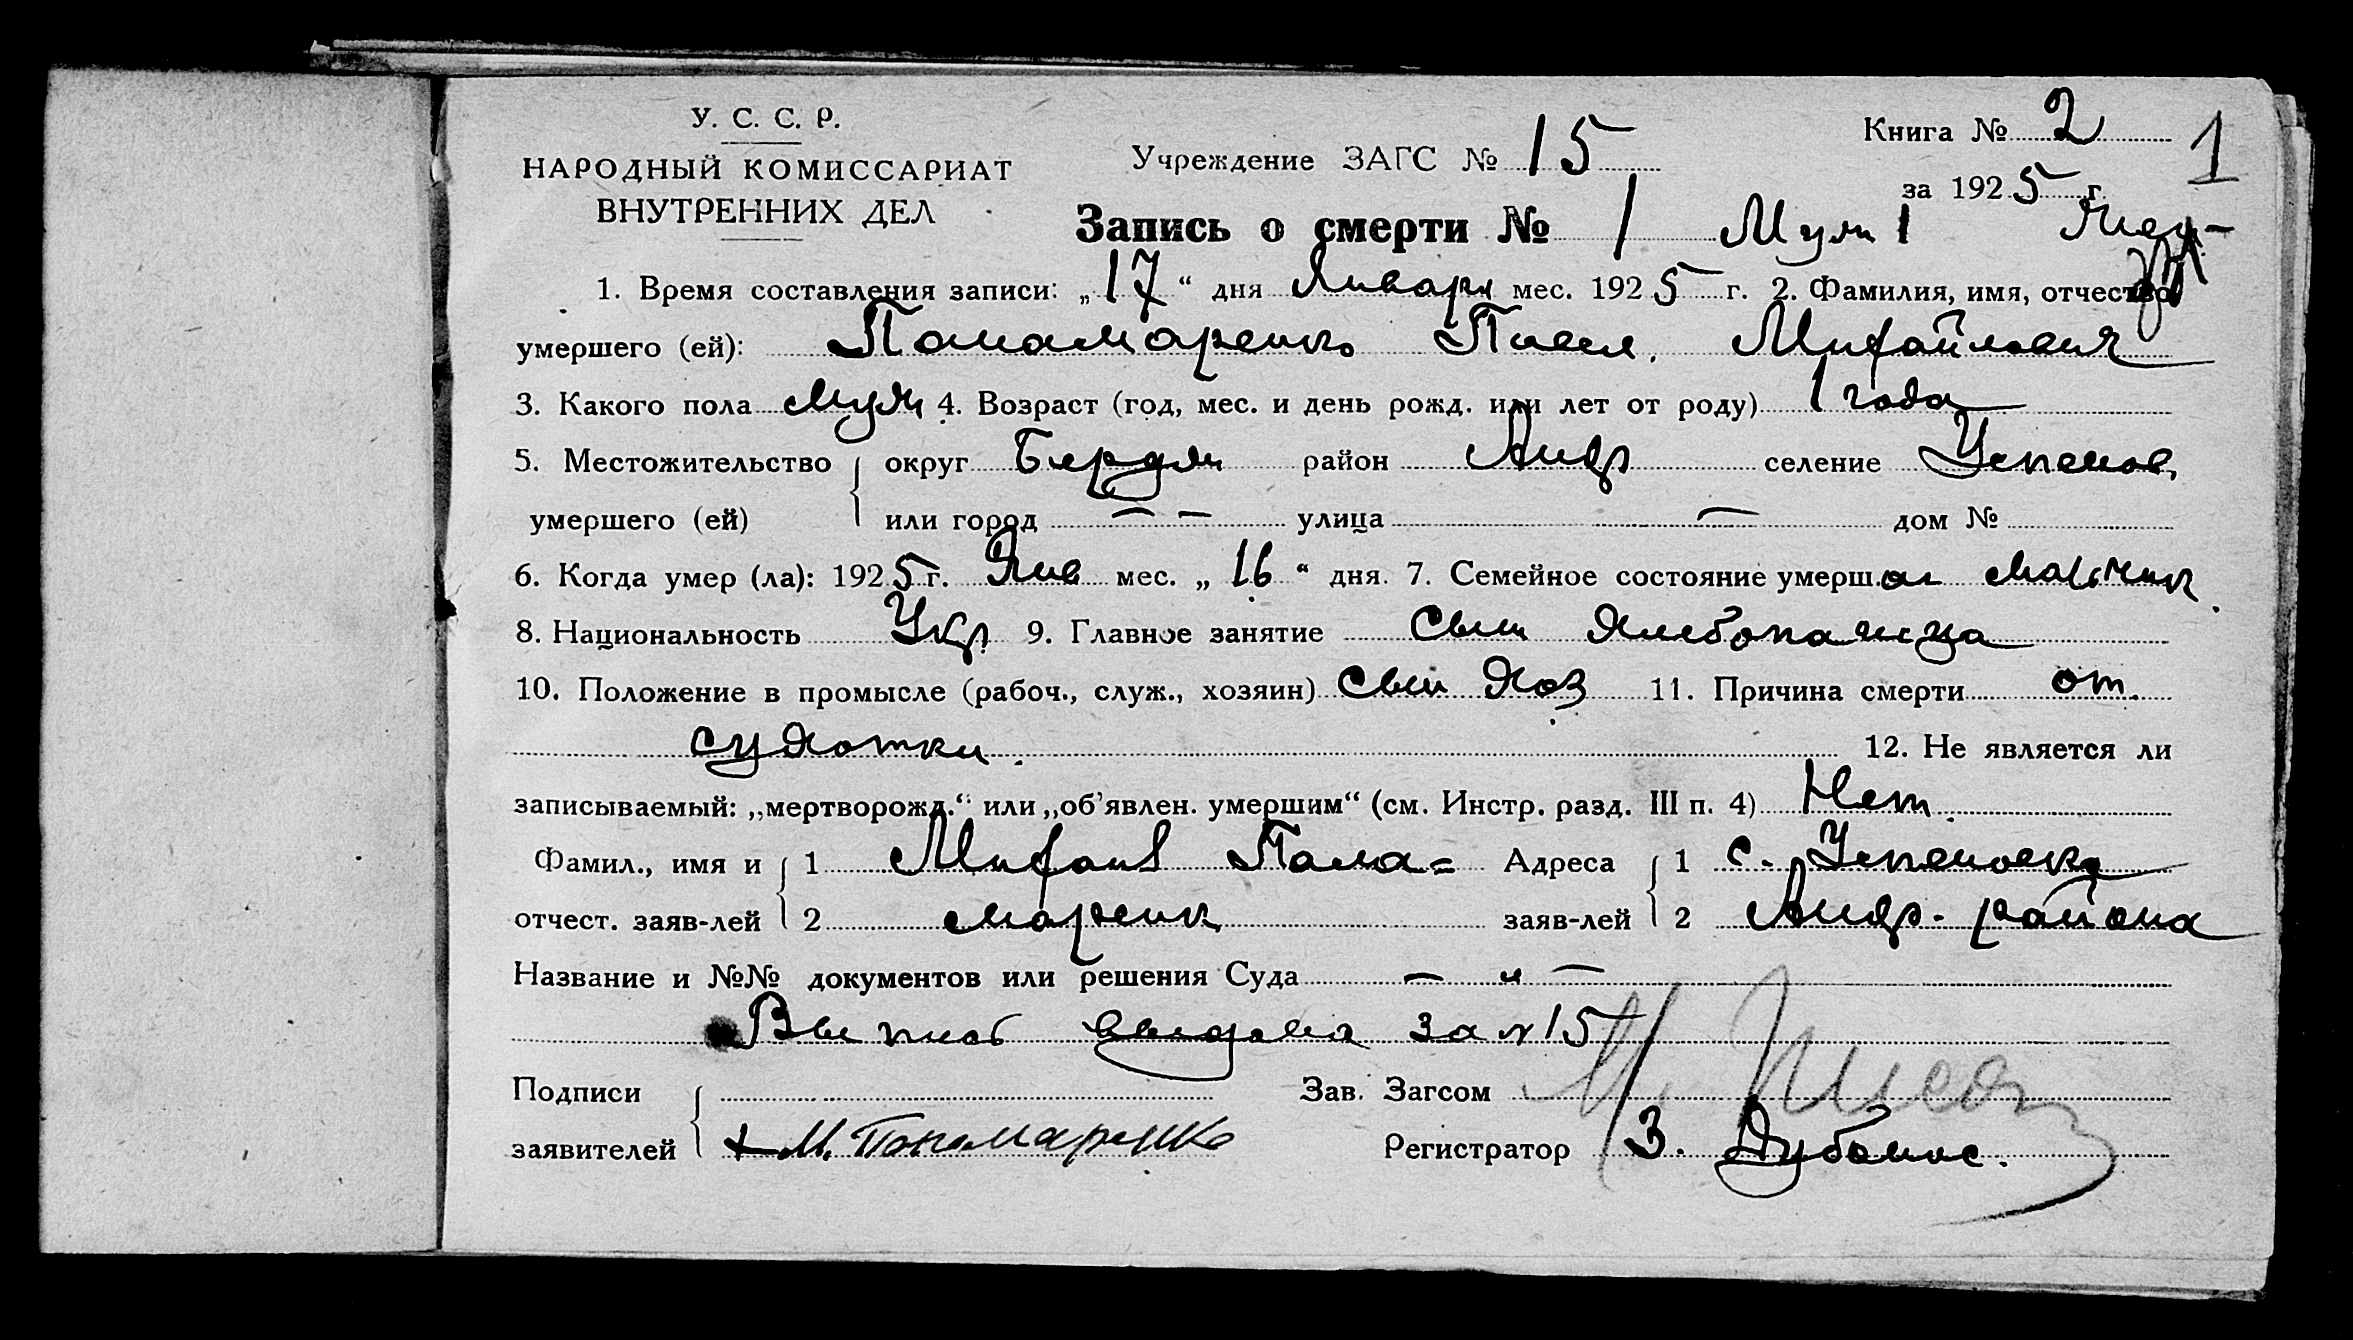 У. С. С. Р.
НАРОДНЫЙ КОМИССАРИАТ
ВНУТРЕННИХ ДЕЛ
Учреждение ЗАГС № 15
Книга № 2
1
за 1925 г.
Запись о смерти № 1 Муж 1
1. Время составления записи: „17“ дня Января мес. 1925 г. 2. Фамилия, имя, отчество
умершего (ей): Панамаренко Михайлович
3. Какого пола муж 4. Возраст (год, мес. и день рожд. или лет от роду) 1 года
5. Местожительство округ Бердян район Андр селение Успенов,
умершего (ей) или город — — улица — дом №
6. Когда умер (ла): 1925 г. Янв мес. „16“ дня. 7. Семейное состояние умерш.
8. Национальность Укр 9. Главное занятие Сын Хлебопашца
10. Положение в промысле (рабоч., служ., хозяин) Сын Хоз 11. Причина смерти от
сухотки.
12. Не является ли
записываемый: „мертворожд.“ или „об'явлен. умершим“ (см. Инстр. разд. III п. 4) Нет.
Фамил., имя и 1 Михаил Пана= Адреса 1 с. Успеновка
отчест. заяв-лей 2 маренк заяв-лей 2 Андр. района
Название и №№ документов или решения Суда — „ —
Выпись выдана за № 15
Подписи Зав. Загсом
заявителей + М. Пономаренко Регистратор З.